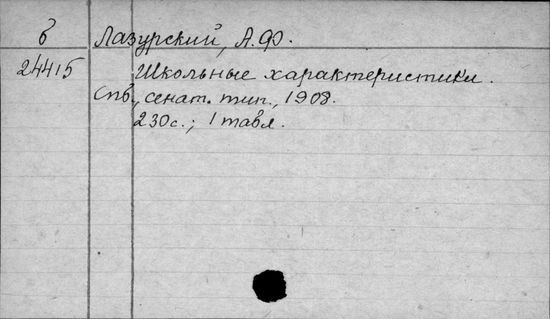 б Лазурский, А.Ф.
24415 Школьные характеристики.
Спб., сенат. тип., 1908.
230с.; 1 табл.